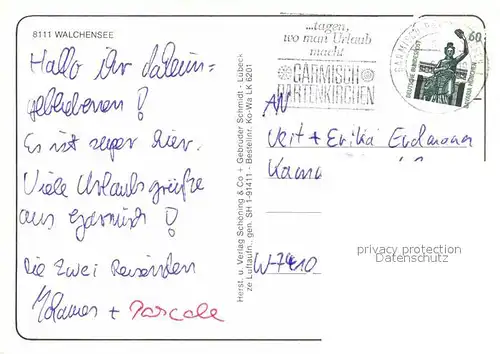 8111 WALCHENSEE
Hallo ihr daheim=
gebliebenen!
Es ist super hier.
Viele Urlaubsgrüße
aus Garmisch!
Die zwei Reisenden
+ Pascale
Herst. u. Verlag Schöning & Co + Gebrüder Schmidt · Lübeck
ze Luftaufn., gen. SH 1-91411 - Bestellnr. Ko-Wa LK 6201
...tagen,
wo man Urlaub
macht
GARMISCH
PARTENKIRCHEN
60
DEUTSCHE BUNDESPOST
BAVARIA MÜNCHEN
AN
Veit + Erika Erdmann
W-7410
privacy protection
Datenschutz